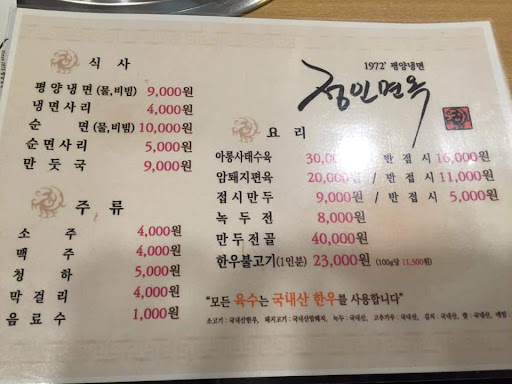 식 사
평양냉면 (물,비빔) 9,000원
냉면사리 4,000원
순 면 (물,비빔) 10,000원
순면사리 5,000원
만 둣 국 9,000원
주 류
소 주 4,000원
맥 주 4,000원
청 하 5,000원
막 걸 리 4,000원
음 료 수 1,000원
1972' 평양냉면
정인면옥
요 리
아롱사태수육 30,00 / 반 접 시 16,000원
암퇘지편육 20,000원 / 반 접 시 11,000원
접시만두 9,000원 / 반 접 시 5,000원
녹 두 전 8,000원
만두전골 40,000원
한우불고기(1인분) 23,000원 (100g당 11,500원)
"모든 육수는 국내산 한우를 사용합니다"
소고기 : 국내산한우, 돼지고기 : 국내산암퇘지, 녹두 : 국내산, 고추가루 : 국내산, 김치 : 국내산, 쌀 : 국내산, 메밀 :